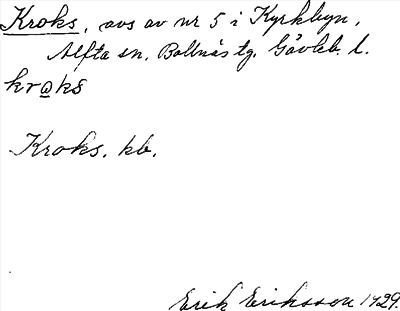 Kroks, avs av nr 5 i Kyrkbyn,
Alfta sn. Bollnäs tg. Gävleb. l.
krɷks
Kroks. kb.
Erik Eriksson 1929.